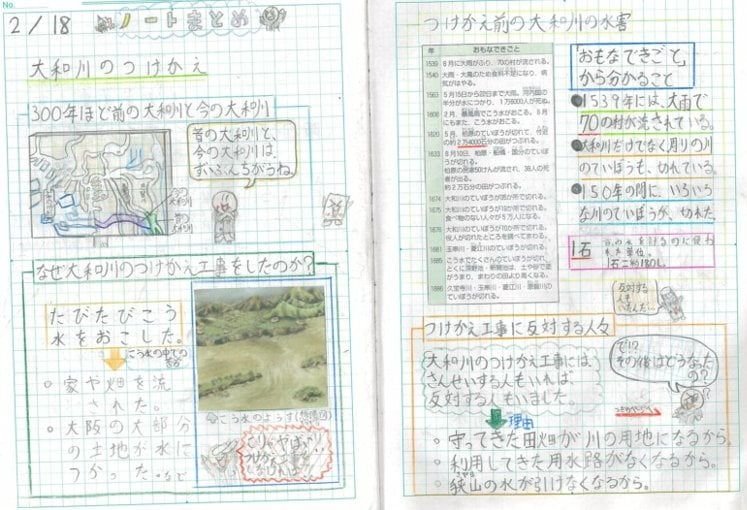 No.
2/18
ノートまとめ
大和川のつけかえ
300年ほど前の大和川と今の大和川
昔の大和川と、
今の大和川は、
ずいぶんちがうね。
なぜ大和川のつけかえ工事をしたのか?
たびたびこう
水をおこした。
こう水の中での
家や畑を流
された。
大阪の大部分
の土地が水に
つかった。など
こう水のようす(想像図)
つけかえ前の大和川の水害
年 おもなできごと
1539 8月に大雨がふり、70の村が流される。
1540 大雨・大風のため食料不足になり、病
気がはやる。
1563 5月15日から22日まで大雨。河内国の
半分が水につかり、1万6000人が死ぬ。
1608 2月、暴風雨でこう水がおこる。8月
にもまた、こう水がおこる。
1620 5月、柏原のていぼうが切れて、付近
の約2万4000石分の田がつぶれる。
1633 8月10日、柏原・船橋・国分のていぼう
が切れる。
柏原の民家50けんが流され、36人の死
者が出る。
約2万石分の田がつぶれる。
1674 大和川のていぼうが35か所で切れる。
1675 大和川のていぼうが19か所で切れる。
食べ物のない人々が5万人になる。
1676 大和川のていぼうが10か所で切れる。
役人が切れたところを調べてまわる。
1681 玉串川・菱江川のていぼうが切れる。
1686 こう水でたくさんのていぼうが切れる。
「おもなできごと」
から分かること
●1539年には、大雨で
70の村が流されている。
●大和川だけでなく周りの川
のていぼうも、切れている。
●150年の間に、いろいろ
な川のていぼうが、切れた。
1石
1石=約180L
反対する
人も
いたんだ…
つけかえ工事に反対する人々
大和川のつけかえ工事には、
さんせいする人もいれば
反対する人もいました。
で!?
その後はどうなった
の?
理由
守ってきた田畑が川の用地になるから。
利用してきた用水路がなくなるから。
狭山の水が引けなくなるから。